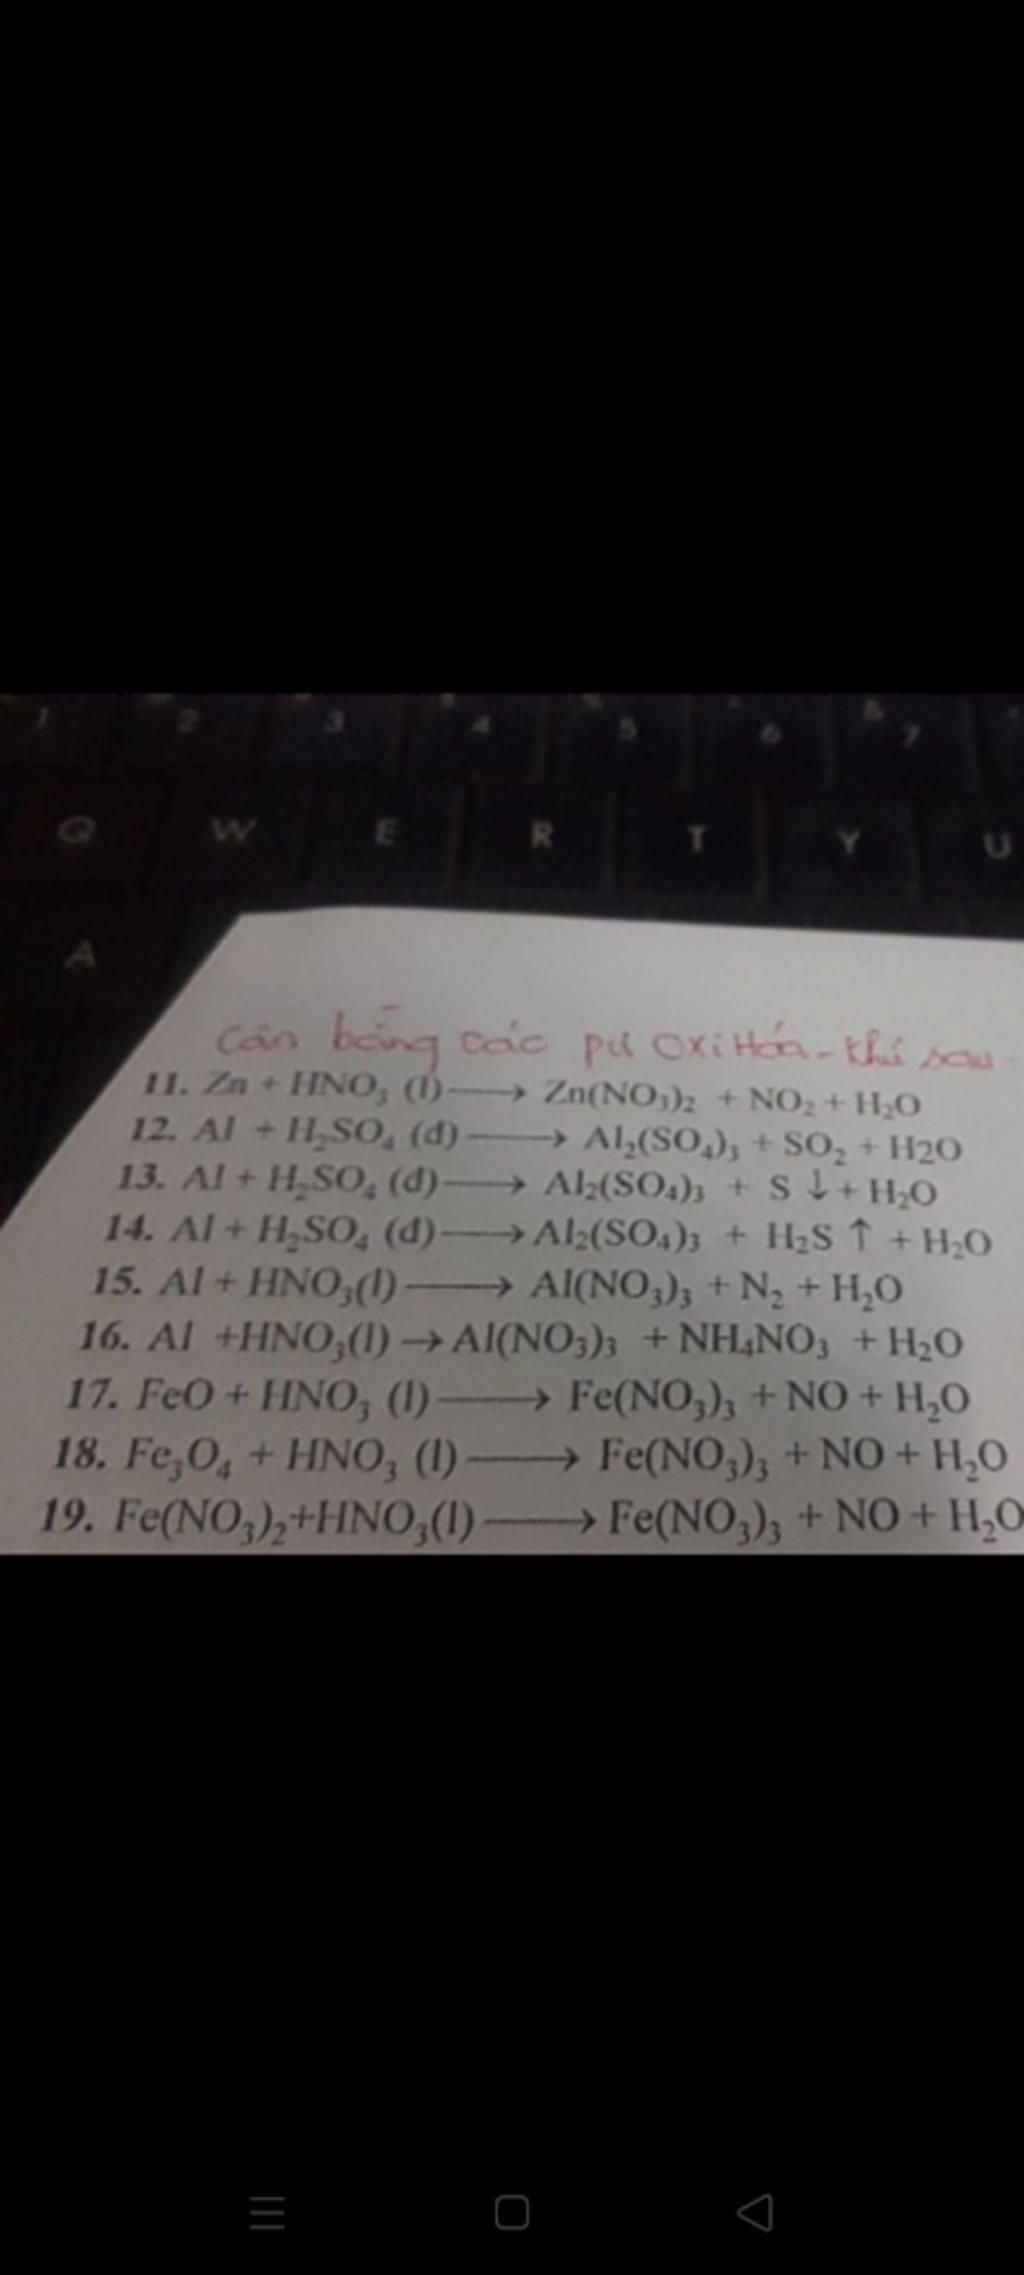 1 2 3 4 5 6 7
Q W E R T Y U
A
Cân bằng các pư oxi Hóa - khử sau
11. Zn + HNO₃ (l) ⟶ Zn(NO₃)₂ + NO₂ + H₂O
12. Al + H₂SO₄ (d) ⟶ Al₂(SO₄)₃ + SO₂ + H2O
13. Al + H₂SO₄ (d) ⟶ Al₂(SO₄)₃ + S ↓ + H₂O
14. Al + H₂SO₄ (d) ⟶ Al₂(SO₄)₃ + H₂S ↑ + H₂O
15. Al + HNO₃(l) ⟶ Al(NO₃)₃ + N₂ + H₂O
16. Al +HNO₃(l) → Al(NO₃)₃ + NH₄NO₃ + H₂O
17. FeO + HNO₃ (l) ⟶ Fe(NO₃)₃ + NO + H₂O
18. Fe₃O₄ + HNO₃ (l) ⟶ Fe(NO₃)₃ + NO + H₂O
19. Fe(NO₃)₂+HNO₃(l) ⟶ Fe(NO₃)₃ + NO + H₂O